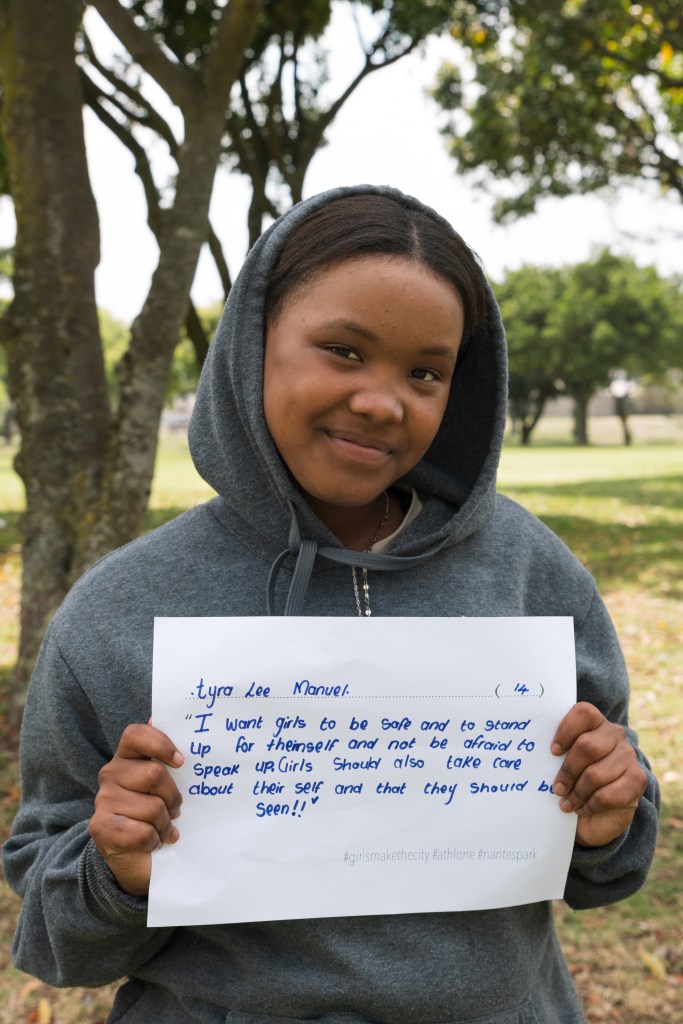 .tyra Lee Manuel. ( 14 )
"I want girls to be safe and to stand
up for theinself and not be afraid to
speak up. Girls should also take care
about their self and that they should be
seen!!
#girlsmakethecity #athlone #nantespark